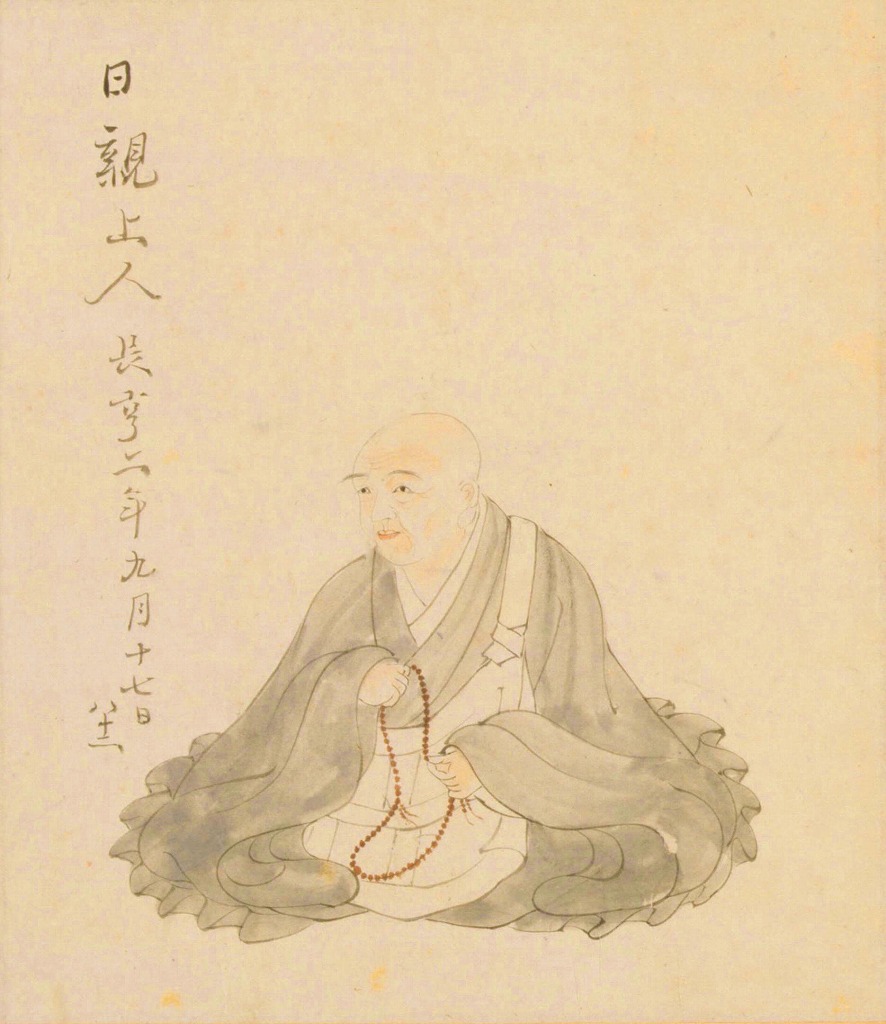 日親上人 長享二年九月十七日
八十二